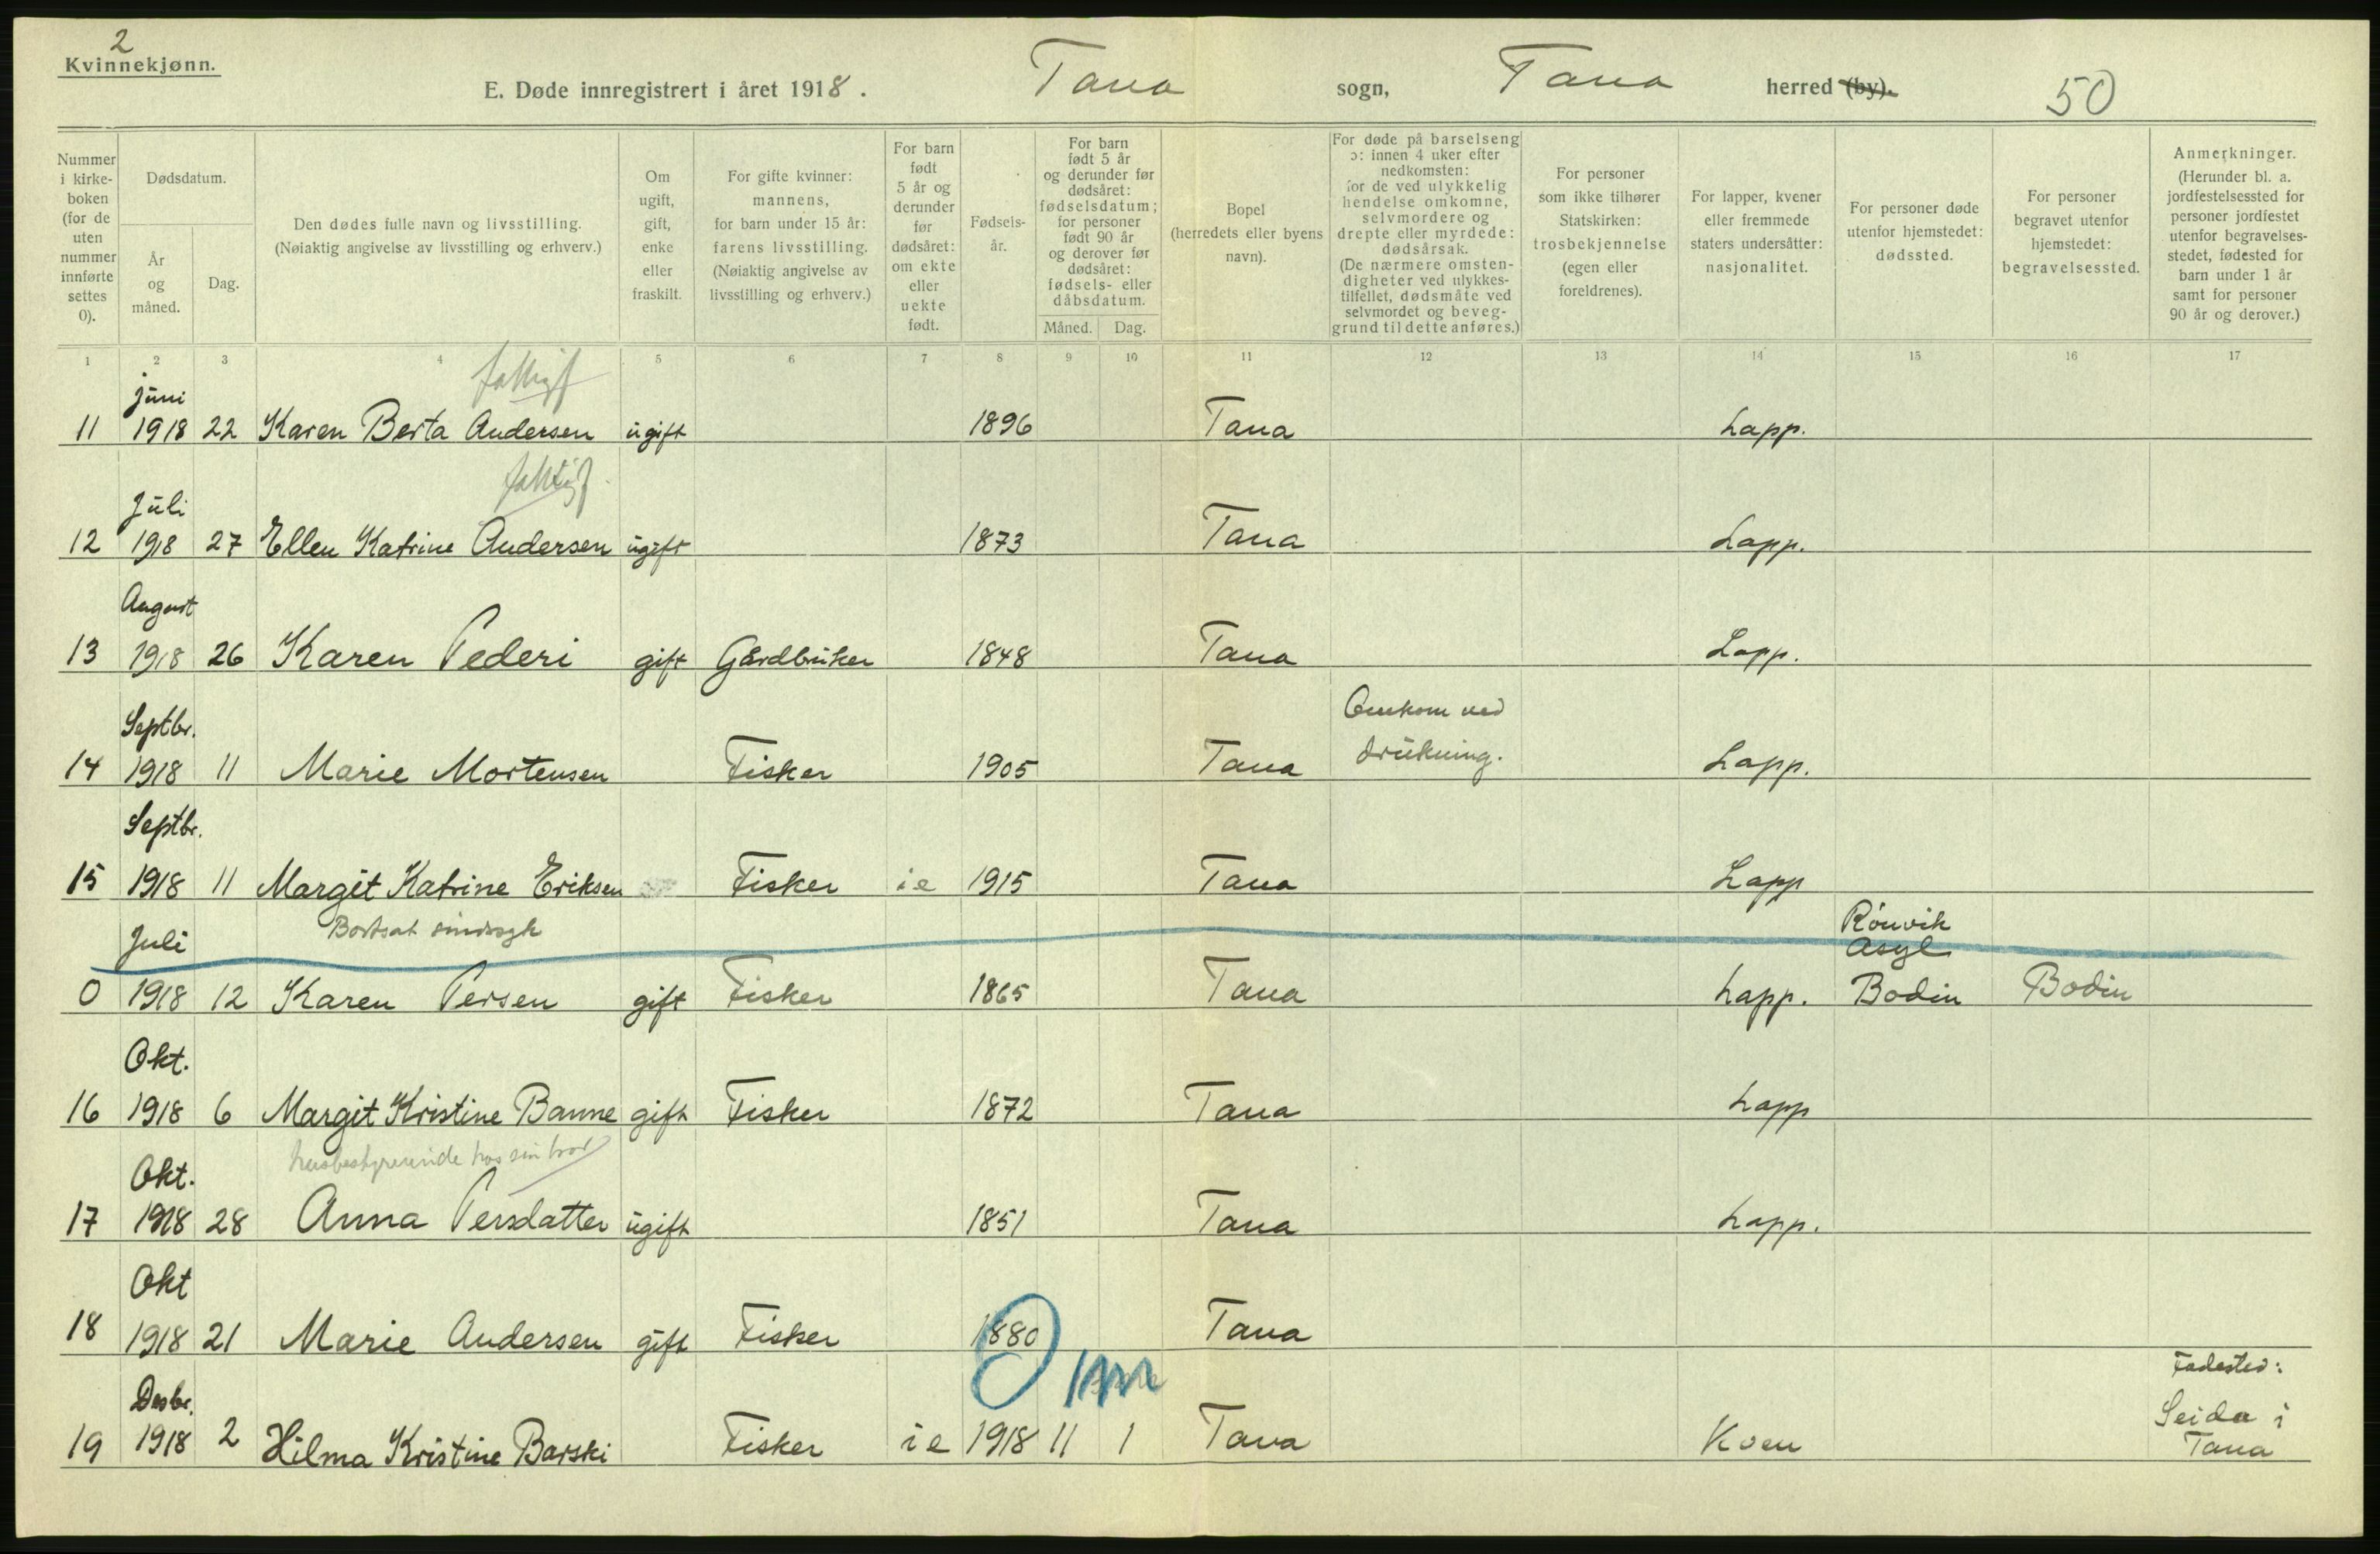 2
Kvinnekjønn.
E. Døde innregistrert i året 1918. Tana sogn, Tana herred (by). 50
Nummer i kirke-boken (for de uten nummer innførte settes 0).
Dødsdatum.
År og måned.
Dag.
Den dødes fulle navn og livsstilling.
(Nøiaktig angivelse av livsstilling og erhverv.)
Om ugift, gift, enke eller fraskilt.
For gifte kvinner: mannens, for barn under 15 år: farens livsstilling. (Nøiaktig angivelse av livsstilling og erhverv.)
For barn født 5 år og derunder før dødsåret: om ekte eller uekte født.
Fødsels-år.
For barn født 5 år og derunder før dødsåret: fødselsdatum; for personer født 90 år og derover før dødsåret: fødsels- eller dåbsdatum.
Måned. Dag.
Bopel (herredets eller byens navn).
For døde på barselseng ɔ: innen 4 uker efter nedkomsten: for de ved ulykkelig hendelse omkomne, selvmordere og drepte eller myrdede: dødsårsak. (De nærmere omsten-digheter ved ulykkes-tilfellet, dødsmåte ved selvmordet og beveg-grund til dette anføres.)
For personer som ikke tilhører Statskirken: trosbekjennelse (egen eller foreldrenes).
For lapper, kvener eller fremmede staters undersåtter: nasjonalitet.
For personer døde utenfor hjemstedet: dødssted.
For personer begravet utenfor hjemstedet: begravelsessted.
Anmerkninger. (Herunder bl. a. jordfestelsessted for personer jordfestet utenfor begravelses-stedet, fødested for barn under 1 år samt for personer 90 år og derover.)
1 2 3 4 5 6 7 8 9 10 11 12 13 14 15 16 17
juni fattig
11 1918 22 Karen Berta Andersen ugift 1896 Tana Lapp.
Juli fattig
12 1918 27 Ellen Katrine Andersen ugift 1873 Tana Lapp.
August
13 1918 26 Karen Pederi gift Gårdbruker 1848 Tana Lapp.
Septbr. Omkom ved
14 1918 11 Marie Mortensen Fisker 1905 Tana drukning. Lapp.
Septbr.
15 1918 11 Margit Katrine Eriksen Fisker ie 1915 Tana Lapp
Juli Bortsat sindssyk Rönvik Asyl
0 1918 12 Karen Persen gift Fisker 1865 Tana Lapp. Bodin Bodin
Okt.
16 1918 6 Margit Kristine Banne gift Fisker 1872 Tana Lapp
Okt. husbestyrerinde hos sin bror
17 1918 28 Anna Persdatter ugift 1851 Tana Lapp.
Okt
18 1918 21 Marie Andersen gift Fisker 1880 Tana
Desbr. Fødested:
19 1918 2 Hilma Kristine Barski Fisker ie 1918 11 1 Tana Kven Seida i Tana